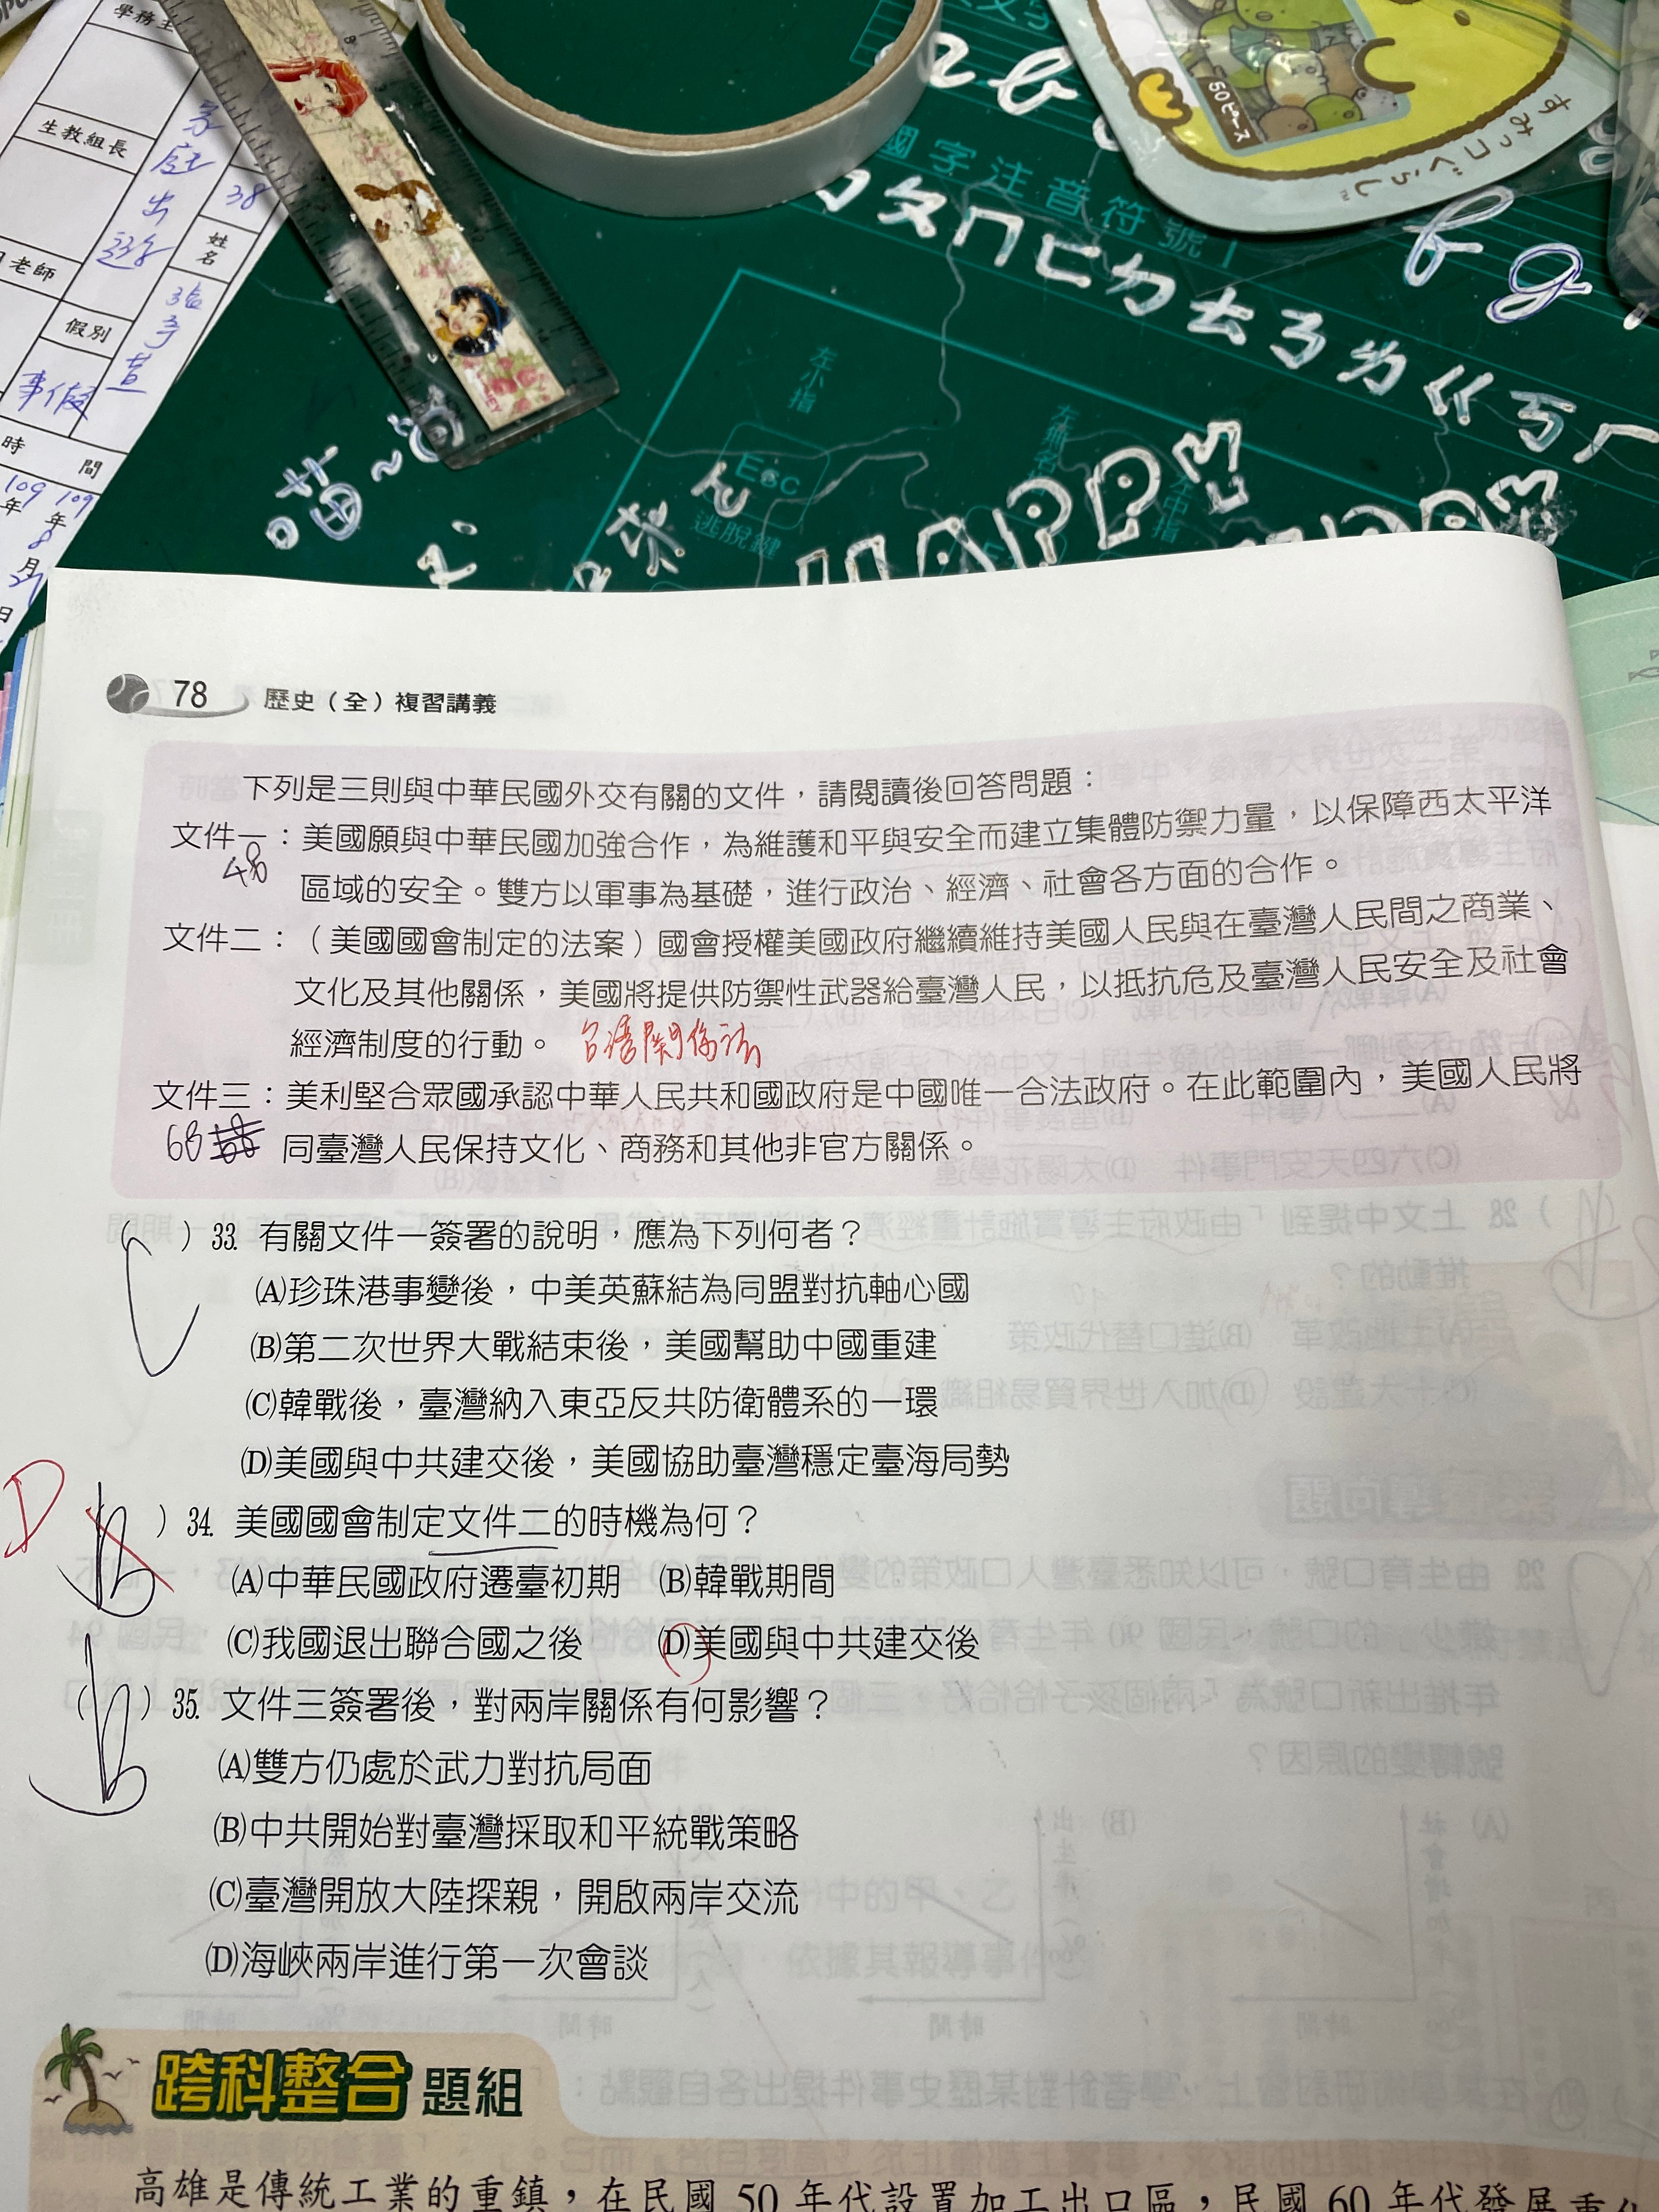 學務主
生教組長
老師
家
庭
出
遊
38
姓
名
假別
事假
時 間
109 109
年 年
8
月
日
すみっコぐらし
50ピース
國字注音符號
ㄅㄆㄇㄈㄉㄊㄋㄌㄍㄎㄏ
左小指
Esc
逃脫鍵
喵~
HAPPY
78 歷史（全）複習講義
下列是三則與中華民國外交有關的文件，請閱讀後回答問題：
文件一：美國願與中華民國加強合作，為維護和平與安全而建立集體防禦力量，以保障西太平洋
48
區域的安全。雙方以軍事為基礎，進行政治、經濟、社會各方面的合作。
文件二：（美國國會制定的法案）國會授權美國政府繼續維持美國人民與在臺灣人民間之商業、
文化及其他關係，美國將提供防禦性武器給臺灣人民，以抵抗危及臺灣人民安全及社會
經濟制度的行動。 台灣關係法
文件三：美利堅合眾國承認中華人民共和國政府是中國唯一合法政府。在此範圍內，美國人民將
68 同臺灣人民保持文化、商務和其他非官方關係。
( C ) 33. 有關文件一簽署的說明，應為下列何者？
(A)珍珠港事變後，中美英蘇結為同盟對抗軸心國
(B)第二次世界大戰結束後，美國幫助中國重建
(C)韓戰後，臺灣納入東亞反共防衛體系的一環
(D)美國與中共建交後，美國協助臺灣穩定臺海局勢
D b ) 34. 美國國會制定文件二的時機為何？
(A)中華民國政府遷臺初期 (B)韓戰期間
(C)我國退出聯合國之後 (D)美國與中共建交後
( b ) 35. 文件三簽署後，對兩岸關係有何影響？
(A)雙方仍處於武力對抗局面
(B)中共開始對臺灣採取和平統戰策略
(C)臺灣開放大陸探親，開啟兩岸交流
(D)海峽兩岸進行第一次會談
跨科整合題組
高雄是傳統工業的重鎮，在民國 50 年代設置加工出口區，民國 60 年代發展重